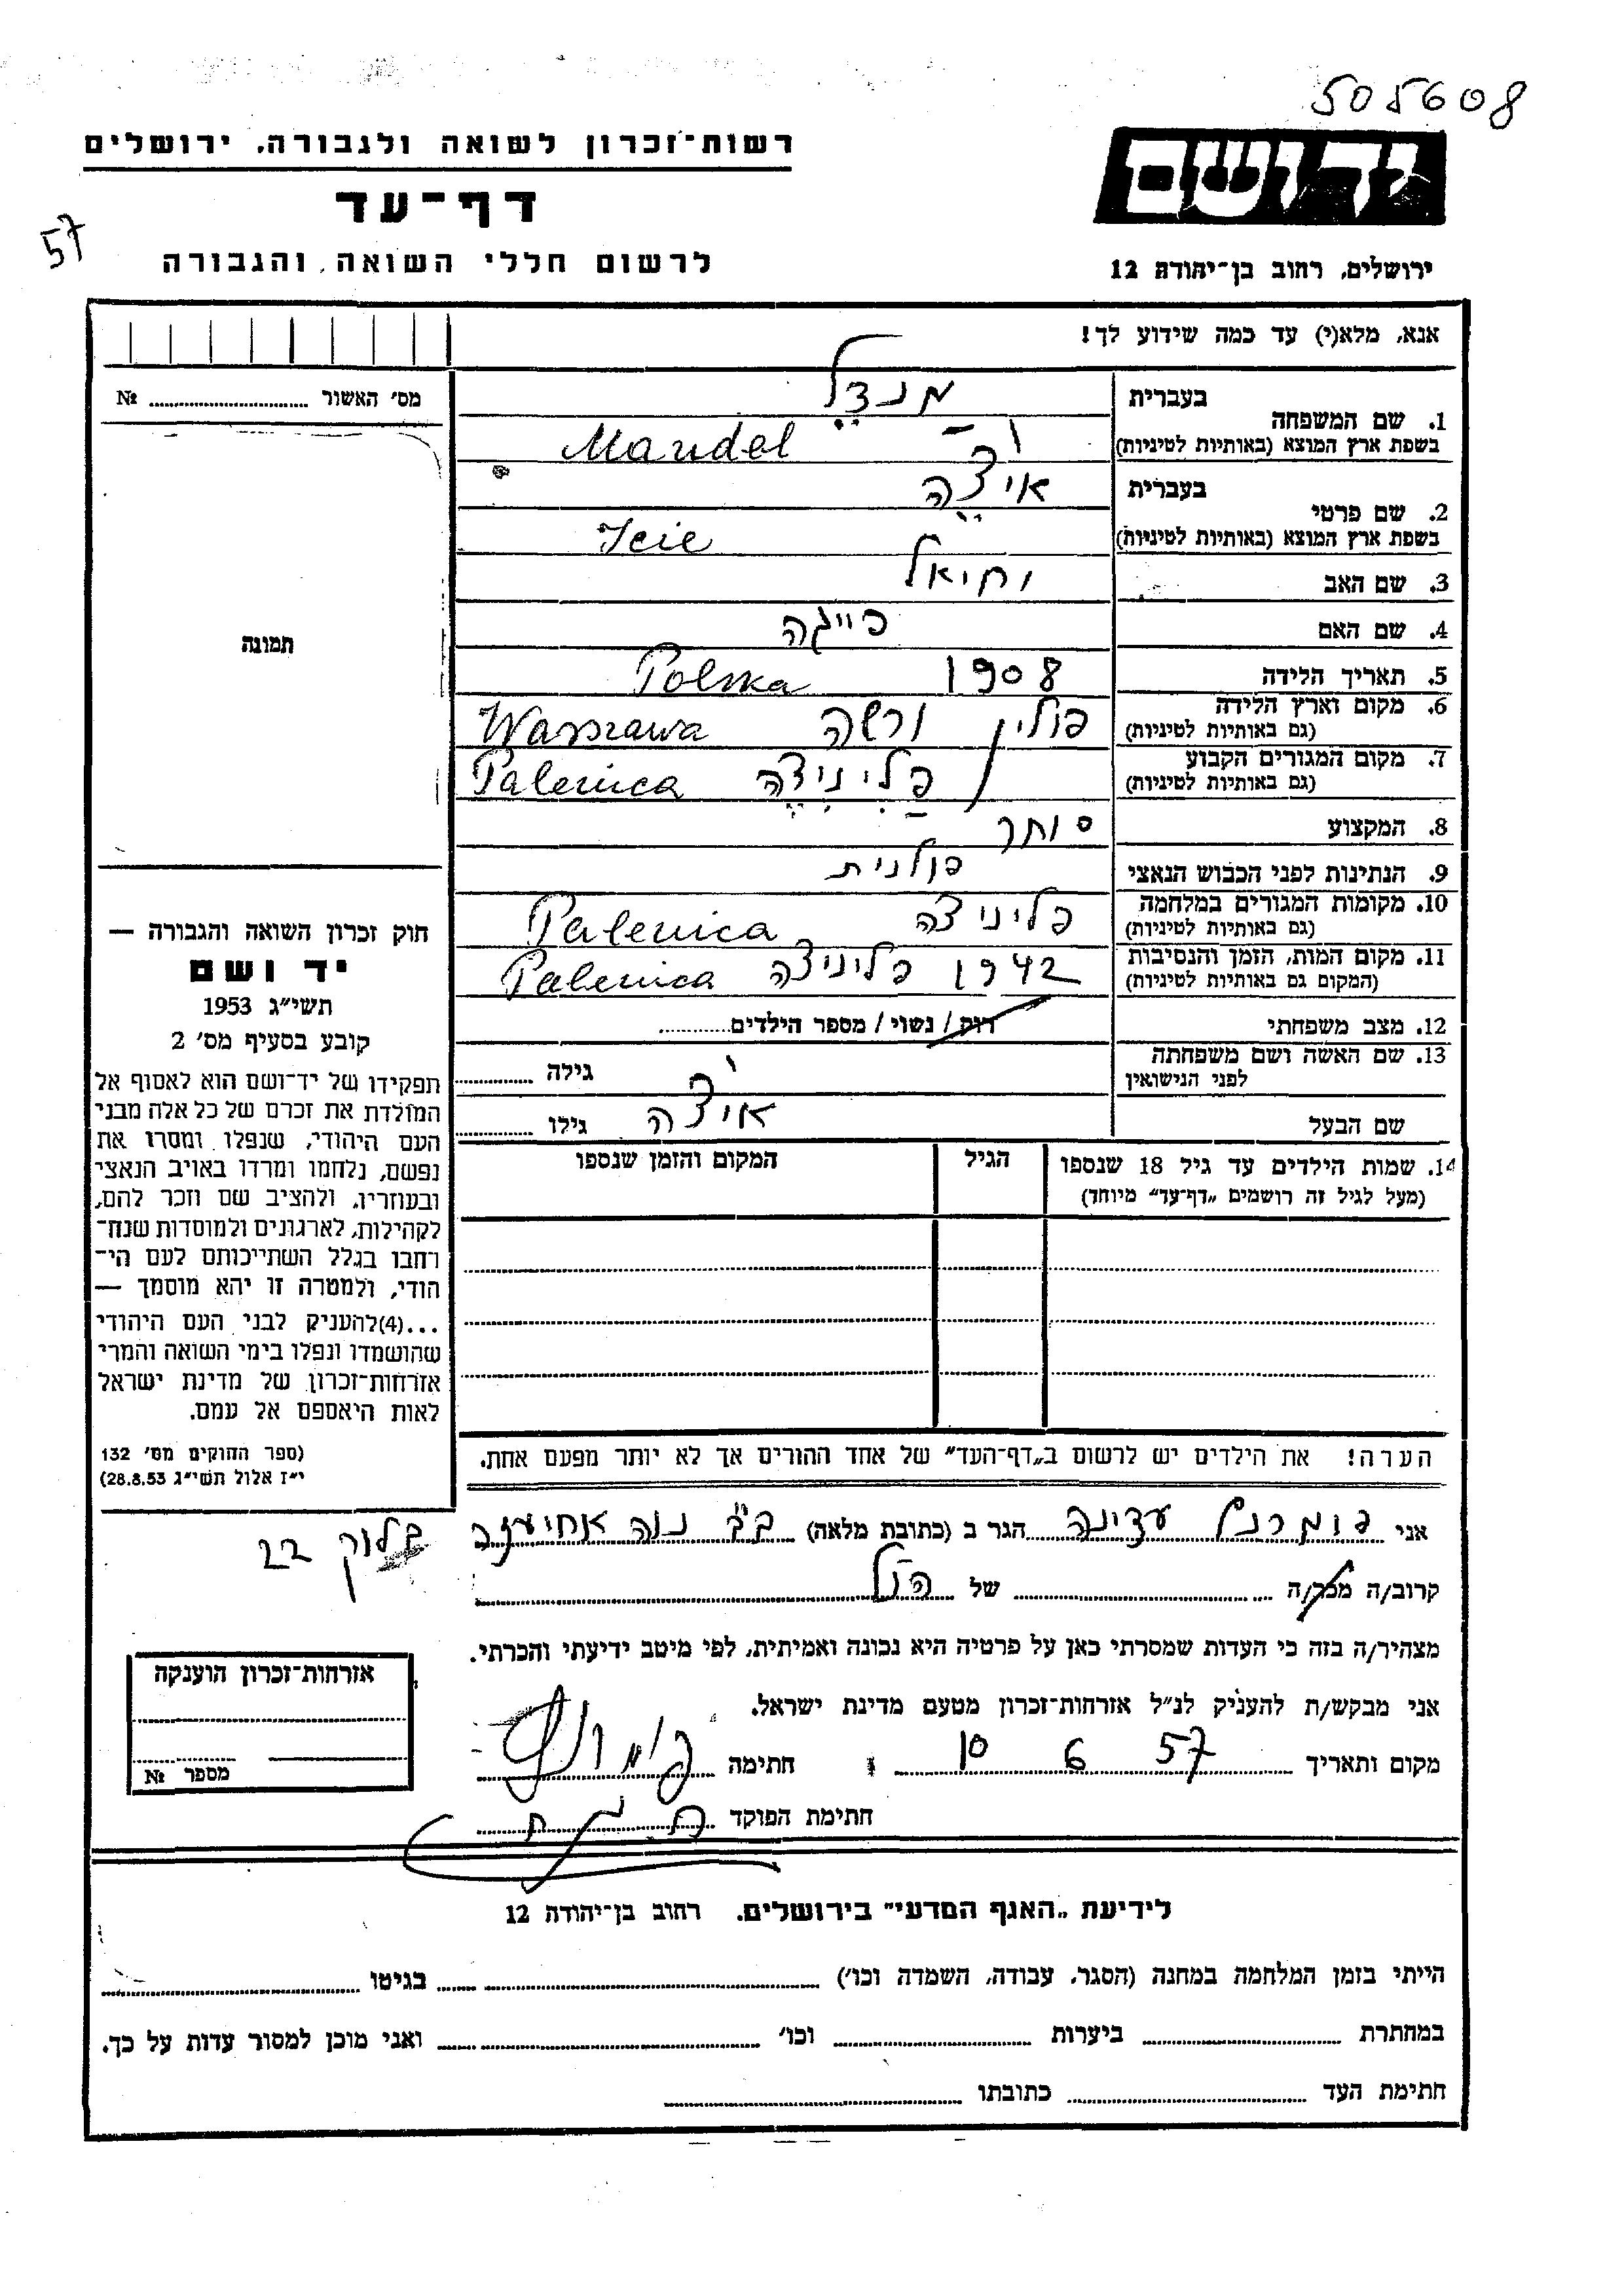 505608
רשות־זכרון לשואה ולגבורה, ירושלים
יד ושם
דף־עד
57
לרשום חללי השואה והגבורה
ירושלים, רחוב בן־יהודה 12
אנא, מלא(י) עד כמה שידוע לך!
מס׳ האשור ........ №
תמונה
1. שם המשפחה בעברית מנדל
בשפת ארץ המוצא (באותיות לטיניות) Mandel
2. שם פרטי בעברית איצה
בשפת ארץ המוצא (באותיות לטיניות) Icie
3. שם האב יחיאל
4. שם האם פייגה
5. תאריך הלידה 1908
6. מקום וארץ הלידה פולין ורשה Polska Warszawa
(גם באותיות לטיניות)
7. מקום המגורים הקבוע פליניצה Palenica
(גם באותיות לטיניות)
8. המקצוע סוחר
9. הנתינות לפני הכבוש הנאצי פולנית
10. מקומות המגורים במלחמה פליניצה Palenica
(גם באותיות לטיניות)
11. מקום המות, הזמן והנסיבות 1942 פליניצה Palenica
(המקום גם באותיות לטיניות)
12. מצב משפחתי רווק / נשוי / מספר הילדים ........
13. שם האשה ושם משפחתה גילה ........
לפני הנישואין
שם הבעל איצה גילו ........
14. שמות הילדים עד גיל 18 שנספו הגיל המקום והזמן שנספו
(מעל לגיל זה רושמים „דף־עד״ מיוחד)
חוק זכרון השואה והגבורה —
יד ושם
תשי״ג 1953
קובע בסעיף מס׳ 2
תפקידו של יד־ושם הוא לאסוף אל
המולדת את זכרם של כל אלה מבני
העם היהודי, שנפלו ומסרו את
נפשם, נלחמו ומרדו באויב הנאצי
ובעוזריו, ולהציב שם וזכר להם,
לקהילות, לארגונים ולמוסדות שנח־
רחבו בגלל השתייכותם לעם הי־
הודי, ולמטרה זו יהא מוסמך —
...(4)להעניק לבני העם היהודי
שהושמדו ונפלו בימי השואה והמרי
אזרחות־זכרון של מדינת ישראל
לאות היאספם אל עמם.
(ספר החוקים מס׳ 132
י״ז אלול תשי״ג 28.8.53)
הערה! את הילדים יש לרשום ב„דף־העד״ של אחד ההורים אך לא יותר מפעם אחת.
אני פומרנץ עדינה הגר ב (כתובת מלאה) ב״ב נוה אחיעזר
בלוק 22
קרוב/ה מכר/ה ........ של הנ״ל
מצהיר/ה בזה כי העדות שמסרתי כאן על פרטיה היא נכונה ואמיתית, לפי מיטב ידיעתי והכרתי.
אני מבקש/ת להעניק לנ״ל אזרחות־זכרון מטעם מדינת ישראל.
מקום ותאריך 10 6 57 חתימה
חתימת הפוקד
אזרחות־זכרון הוענקה
מספר №
לידיעת „האגף המדעי״ בירושלים. רחוב בן־יהודה 12
הייתי בזמן המלחמה במחנה (הסגר, עבודה, השמדה וכו׳) ........ בגיטו ........
במחתרת ........ ביערות ........ וכו׳ ........ ואני מוכן למסור עדות על כך.
חתימת העד ........ כתובתו ........